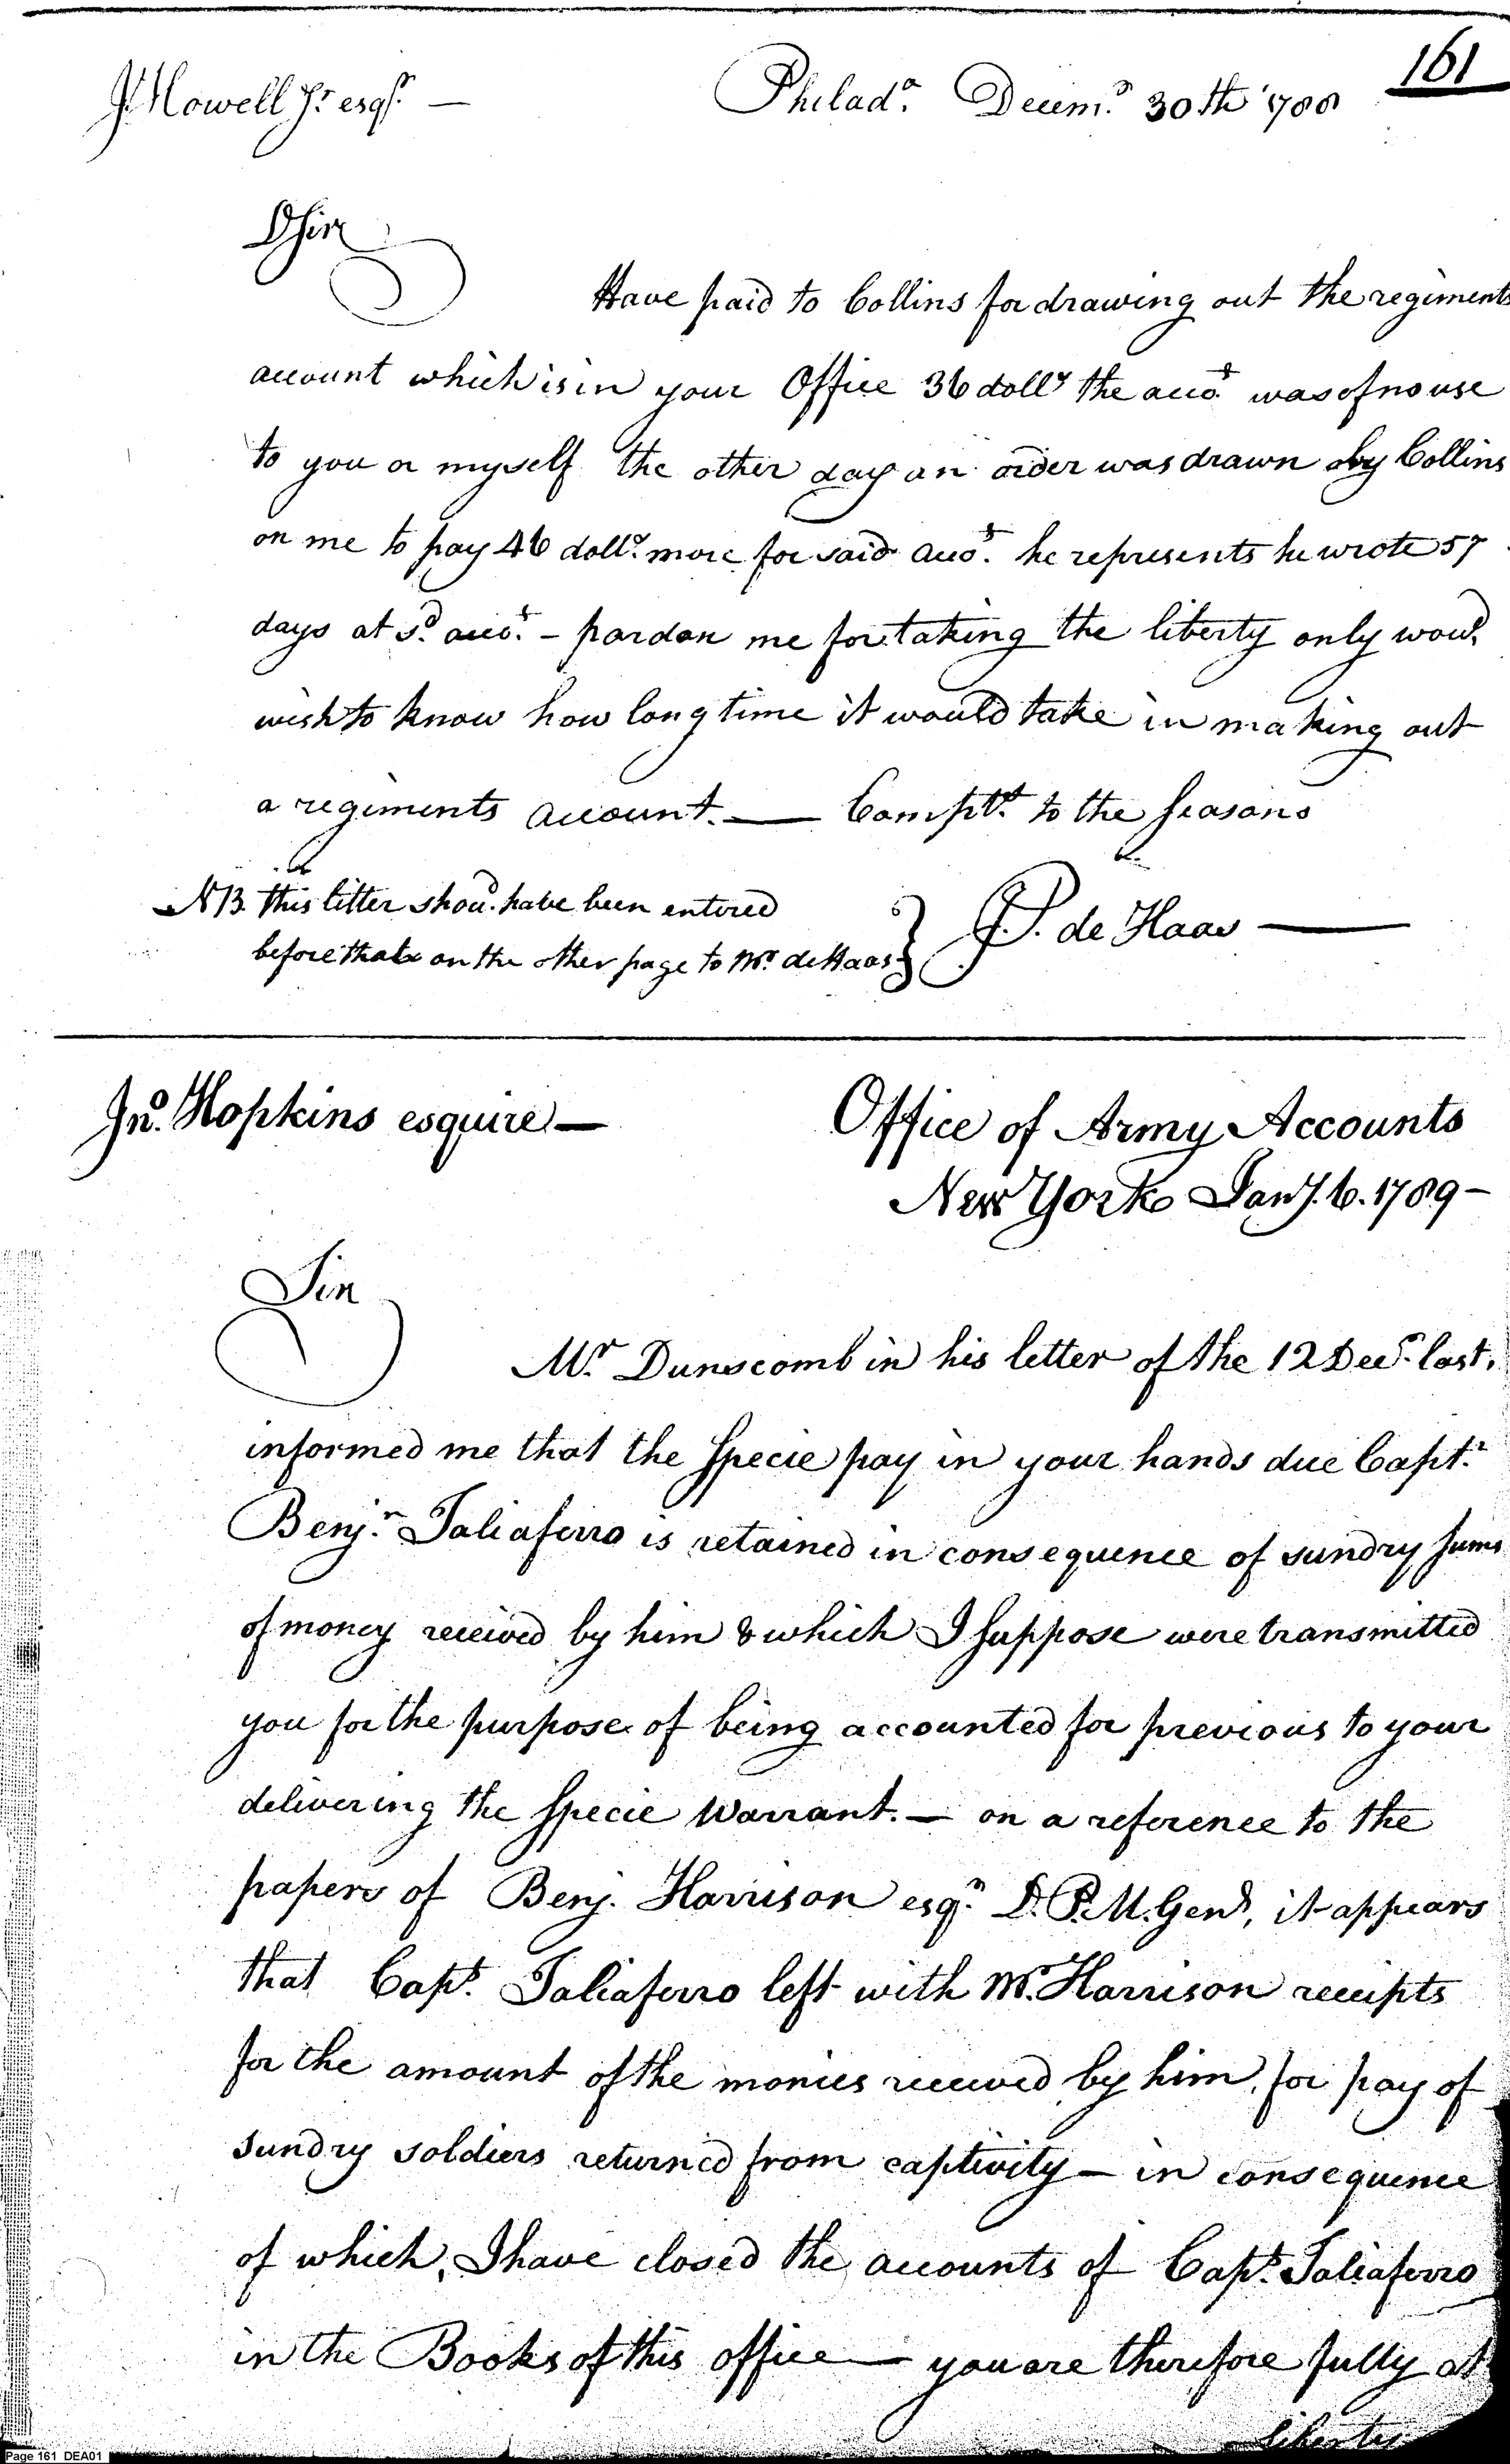 161
J. Howell Jr. esqr. — Philada. Decemr. 30th 1788
DSir
Have paid to Collins for drawing out the regiments
account which is in your Office 36 dollrs the accot. was of no use
to you or myself the other day an order was drawn by Collins
on me to pay 46 dollrs. more for said accot. he represents he wrote 57
days at sd. accot. – pardon me for taking the liberty only woud.
wish to know how long time it would take in making out
a regiments account. — Complts. to the seasons
&c.
NB. this letter shoud. have been entered
before that on the other page to Mr. de Haas } J.P. de Haas —
Jno. Hopkins esquire — Office of Army Accounts
New York Jany. 6. 1789 –
Sir
Mr. Dunscomb in his letter of the 12 Decr. last,
informed me that the specie pay in your hands due Captn.
Benjn. Taliaferro is retained in consequence of sundry sums
of money received by him & which I suppose were transmitted
you for the purpose of being accounted for previous to your
delivering the specie Warrant. — on a reference to the
papers of Benj. Harrison esqr. D.P.M. Genl, it appears
that Capt. Taliaferro left with Mr. Harrison receipts
for the amount of the monies received by him, for pay of
sundry soldiers returned from captivity — in consequence
of which, I have closed the accounts of Capt. Taliaferro
in the Books of this office — you are therefore fully at
liberty
Page 161 DEA01